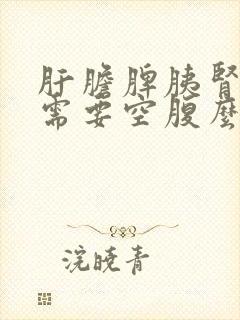 肝膽脾胰腎
需要空腹麼
浣曉青